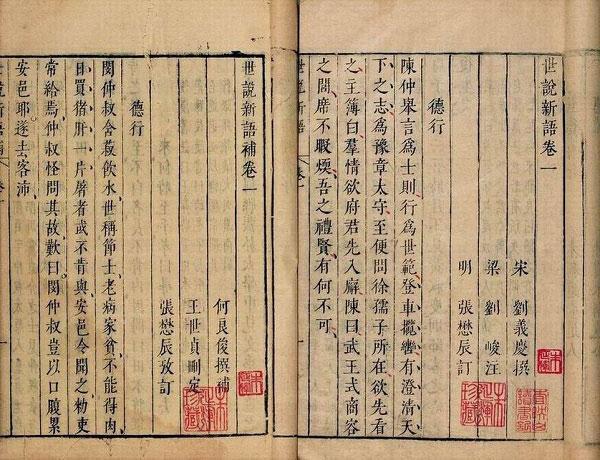 世說新語卷一
宋 劉義慶撰
梁 劉峻注
明 張懋辰訂
德行
陳仲舉言為士則行為世範登車攬轡有澄清天
下之志為豫章太守至便問徐孺子所在欲先看
之主簿白羣情欲府君先入廨陳曰武王式商容
之閭席不暇煖吾之禮賢有何不可
世說新語
卷一
世說新語補卷一
何良俊撰補
王世貞刪定
張懋辰攷訂
德行
閔仲叔含菽飲水世稱節士老病家貧不能得肉
日買猪肝一片屠者或不肯與安邑令聞之勑吏
常給焉仲叔怪問其故歎曰閔仲叔豈以口腹累
安邑耶遂去客沛
世說新語補
卷一